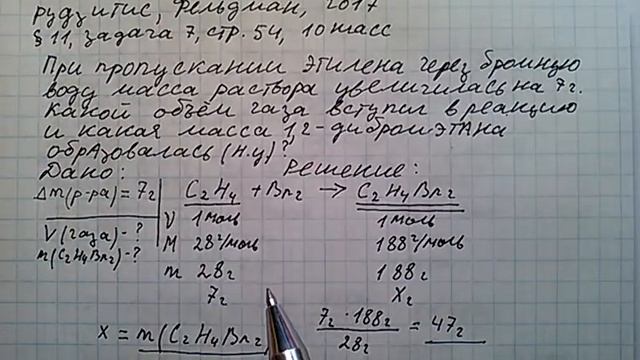 рудзитис, Фельдман, 2017
§ 11, задача 7, стр. 54, 10 класс
При пропускании этилена через бромную
воду масса раствора увеличилась на 7г.
Какой объём газа вступил в реакцию
и какая масса 1,2-дибромэтана
образовалась (н.у)?
Дано: Решение:
Δm(р-ра) = 7г C₂H₄ + Br₂ → C₂H₄Br₂
V(газа) - ? ν 1моль 1моль
m(C₂H₄Br₂) - ? M 28г/моль 188г/моль
m 28г 188г
7г Xг
X = m(C₂H₄Br₂ 7г · 188г / 28г = 47г